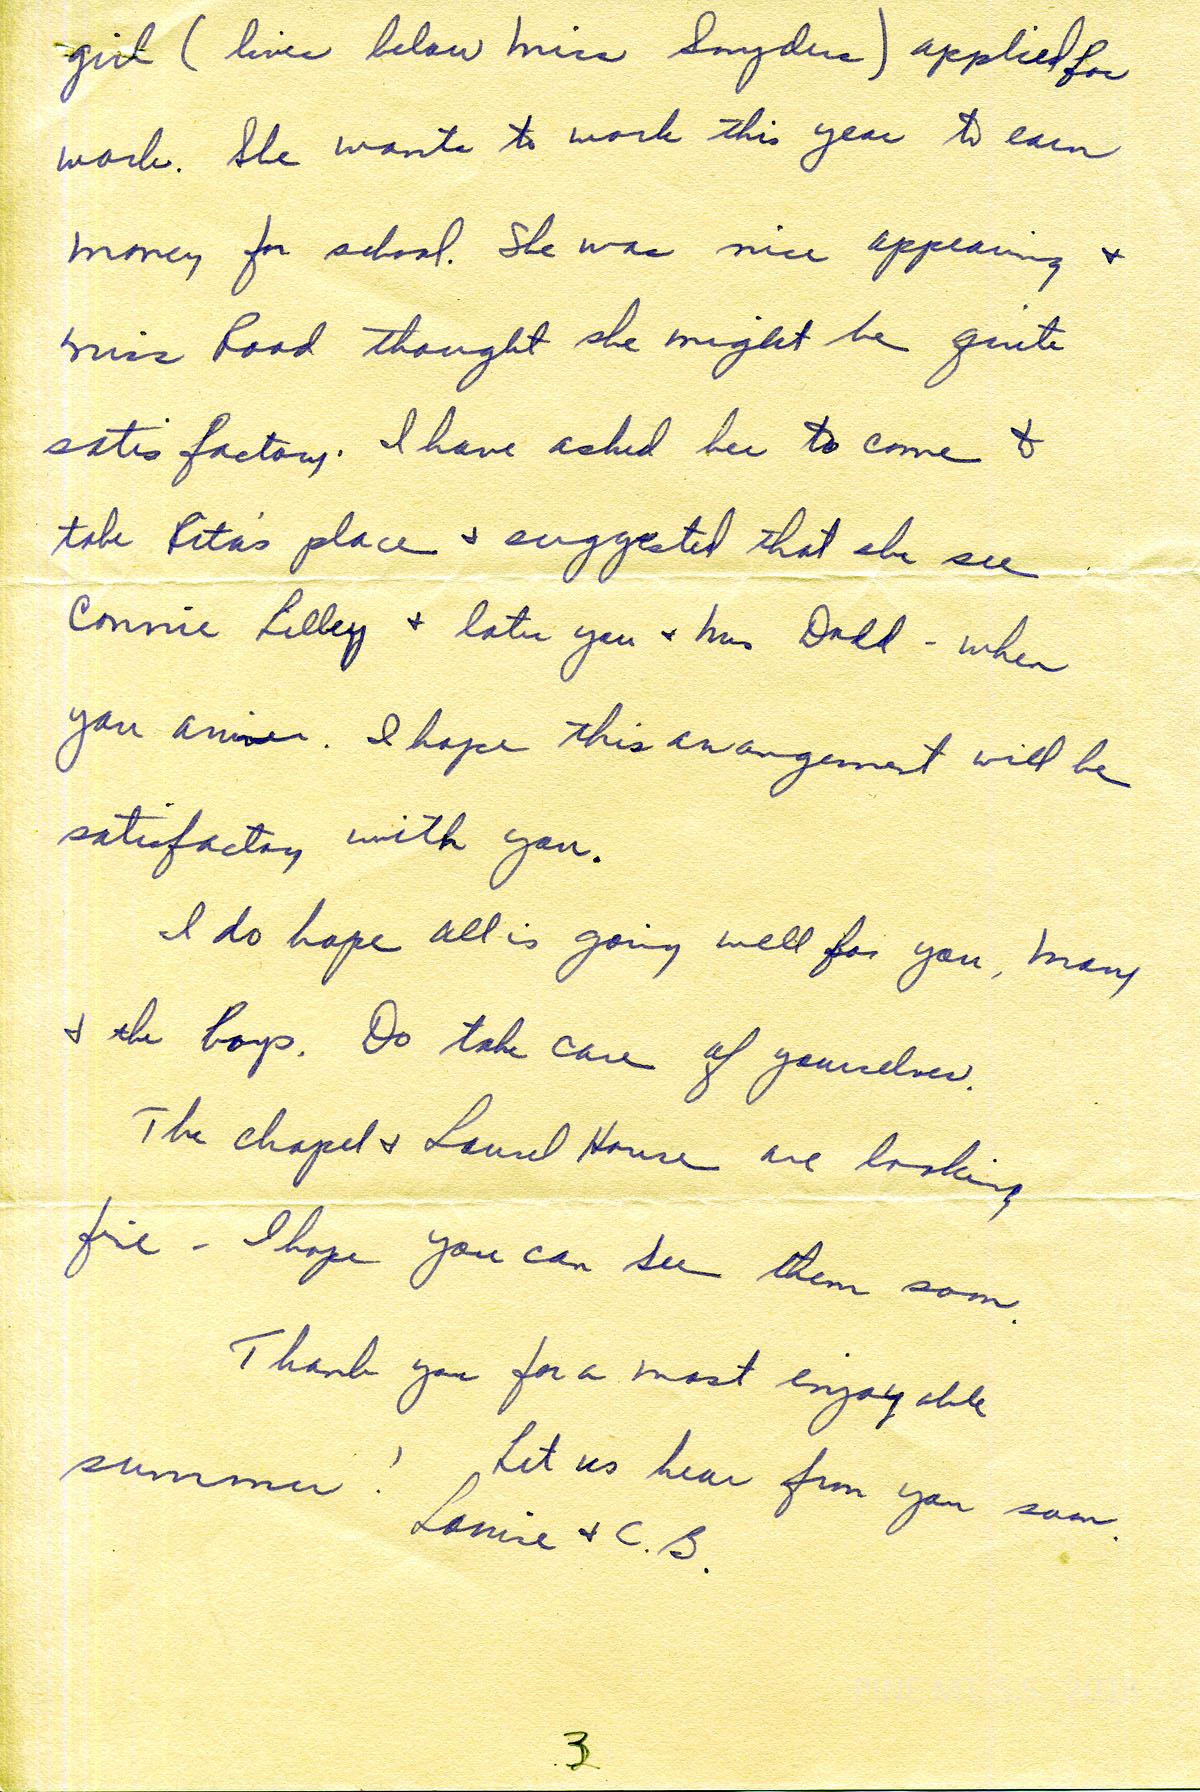 girl (lives below Miss Snyders) applied for
work. She wants to work this year to earn
money for school. She was nice appearing &
Miss Rood thought she might be quite
satisfactory. I have asked her to come &
take Rita's place & suggested that she see
Connie Lilley & later you & Mrs Dodd - when
you arrive. I hope this arrangement will be
satisfactory with you.
I do hope all is going well for you, Mary
& the boys. Do take care of yourselves.
The chapel & Laurel House are looking
fine - I hope you can see them soon.
Thank you for a most enjoyable
summer! Let us hear from you soon.
Louise & C.B.
3